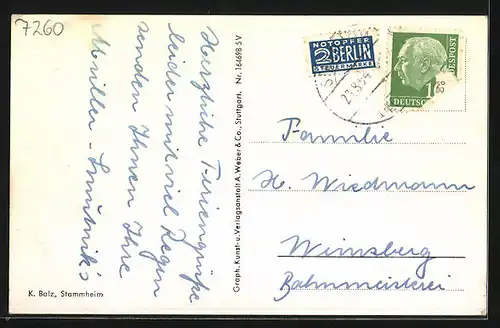 7260
Herzliche Feriengrüße
leider mit viel Regen
senden Ihnen Ihre
Müller -
K. Balz, Stammheim
Graph. Kunst- u. Verlagsanstalt A. Weber & Co., Stuttgart. Nr. 16469B 5V
NOTOPFER
2 BERLIN
STEUERMARKE
DEUTSC
ESPOST
Familie
H. Wiedmann
Weinsberg
Bahnmeisterei